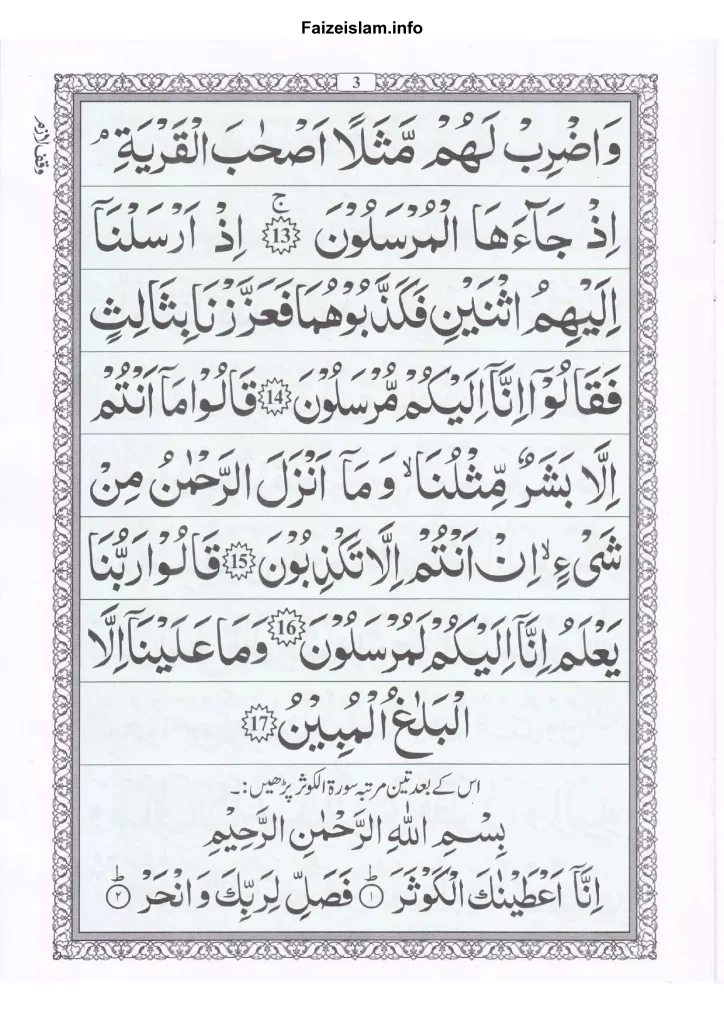 Faizeislam.info
3
وقف لازم
وَاضْرِبْ لَهُمْ مَّثَلًا اَصْحٰبَ الْقَرْيَةِ ۘ
اِذْ جَآءَهَا الْمُرْسَلُوْنَ ۚ 13 اِذْ اَرْسَلْنَاۤ
اِلَيْهِمُ اثْنَيْنِ فَكَذَّبُوْهُمَا فَعَزَّزْنَا بِثَالِثٍ
فَقَالُوْۤا اِنَّاۤ اِلَيْكُمْ مُّرْسَلُوْنَ 14 قَالُوْا مَاۤ اَنْتُمْ
اِلَّا بَشَرٌ مِّثْلُنَا ۙ وَمَاۤ اَنْزَلَ الرَّحْمٰنُ مِنْ
شَىْءٍ ۙ اِنْ اَنْتُمْ اِلَّا تَكْذِبُوْنَ 15 قَالُوْا رَبُّنَا
يَعْلَمُ اِنَّاۤ اِلَيْكُمْ لَمُرْسَلُوْنَ 16 وَمَا عَلَيْنَاۤ اِلَّا
الْبَلٰغُ الْمُبِيْنُ 17
اس کے بعد تین مرتبہ سورۃ الکوثر پڑھیں:۔
بِسْمِ اللّٰهِ الرَّحْمٰنِ الرَّحِيْمِ
اِنَّاۤ اَعْطَيْنٰكَ الْكَوْثَرَ ؕ ۱ فَصَلِّ لِرَبِّكَ وَ انْحَرْ ؕ ۲